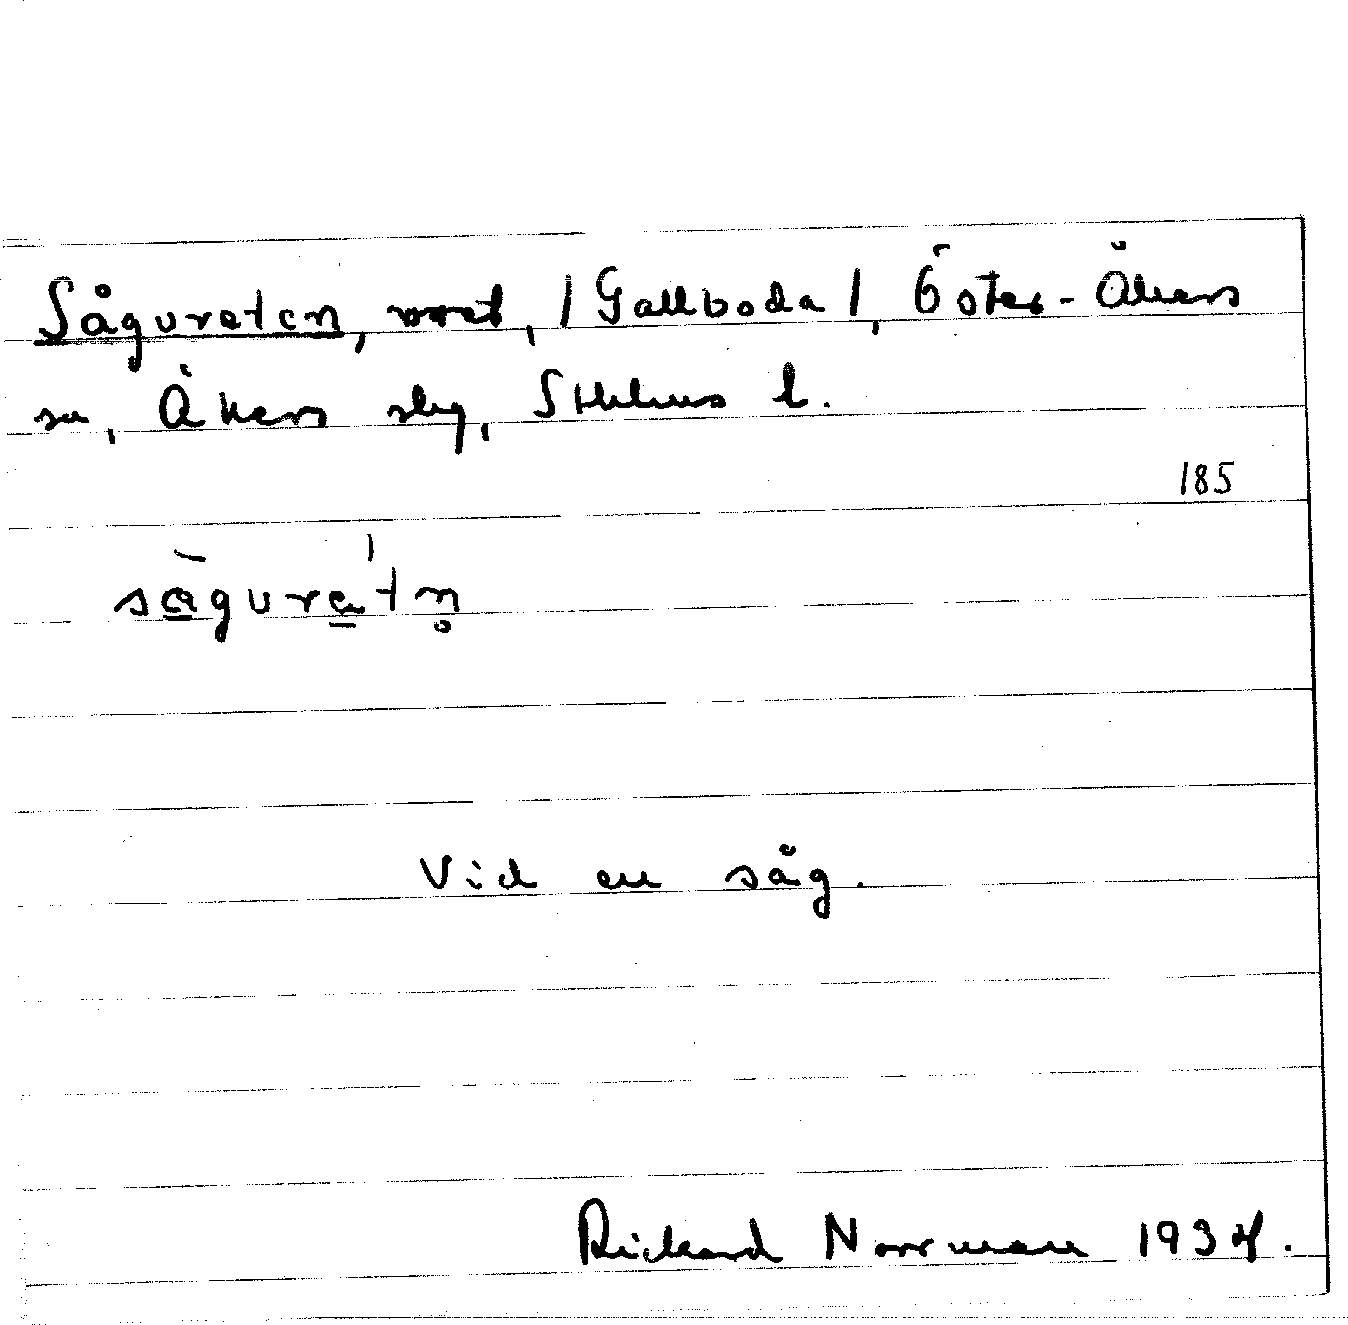 Sågvreten, vret, /Gallboda/, Öster-Åkers
sn, Åkers slg, Sthlms l.
185
sågvrétn̥
Vid en såg.
Rickard Norrman 1934.